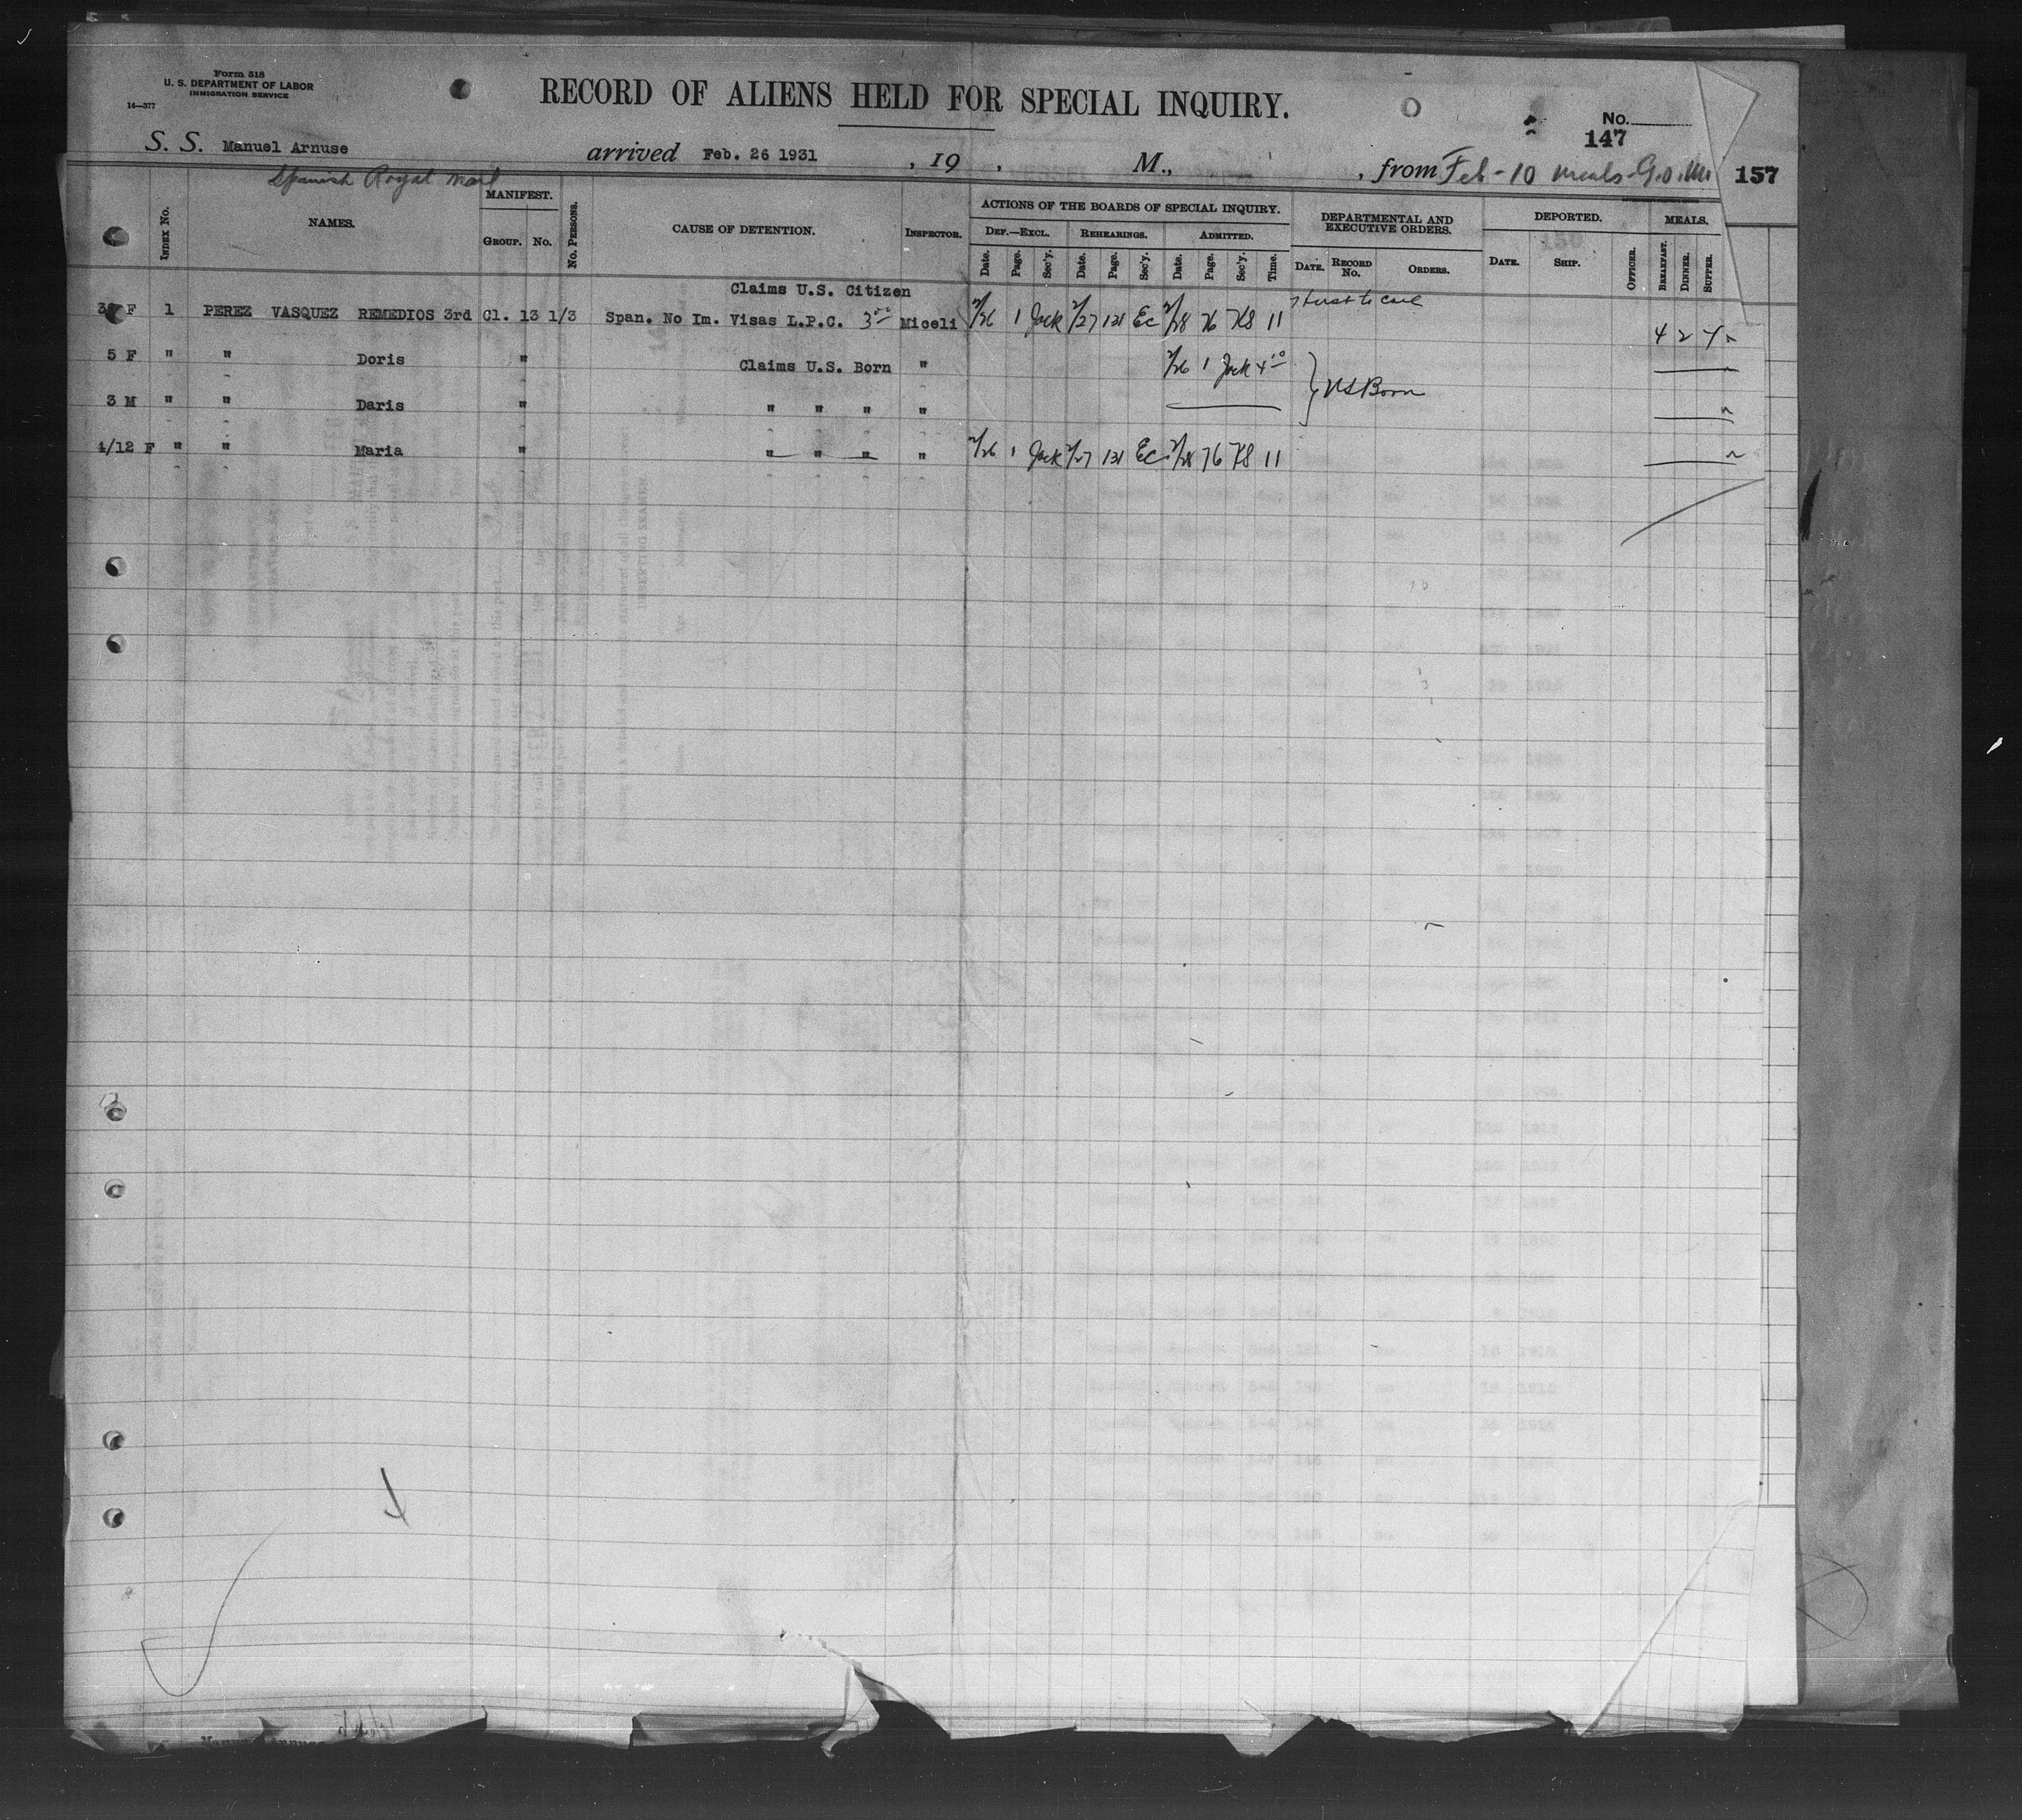 Form 518
U. S. DEPARTMENT OF LABOR
IMMIGRATION SERVICE
14—377
RECORD OF ALIENS HELD FOR SPECIAL INQUIRY.
No.
147
S. S. Manuel Arnuse arrived Feb. 26 1931 , 19 , M., , from Feb - 10 meals - G.O.M.
157
Spanish Royal Mail
INDEX No. NAMES. MANIFEST. GROUP. No. No. PERSONS. CAUSE OF DETENTION. INSPECTOR.
ACTIONS OF THE BOARDS OF SPECIAL INQUIRY.
DEF.—EXCL. REHEARINGS. ADMITTED.
Date. Page. Sec'y. Date. Page. Sec'y. Date. Page. Sec'y. Time.
DEPARTMENTAL AND EXECUTIVE ORDERS.
DATE. RECORD No. ORDERS.
DEPORTED.
DATE. SHIP. OFFICER.
MEALS.
BREAKFAST. DINNER. SUPPER.
Claims U.S. Citizen
F 1 PEREZ VASQUEZ REMEDIOS 3rd Cl. 13 1/3 Span. No Im. Visas L.P.C. 3 00 Miceli 2/26 1 Jack 2/27 131 Ec 2/28 76 KS 11 4 2 4
5 F " " Doris " Claims U.S. Born " 2/26 1 Jack 4 10
3 M " " Daris " " " " " } US Born
4/12 F " " Maria " " " " " 2/26 1 Jack 2/27 131 Ec 2/28 76 KS 11